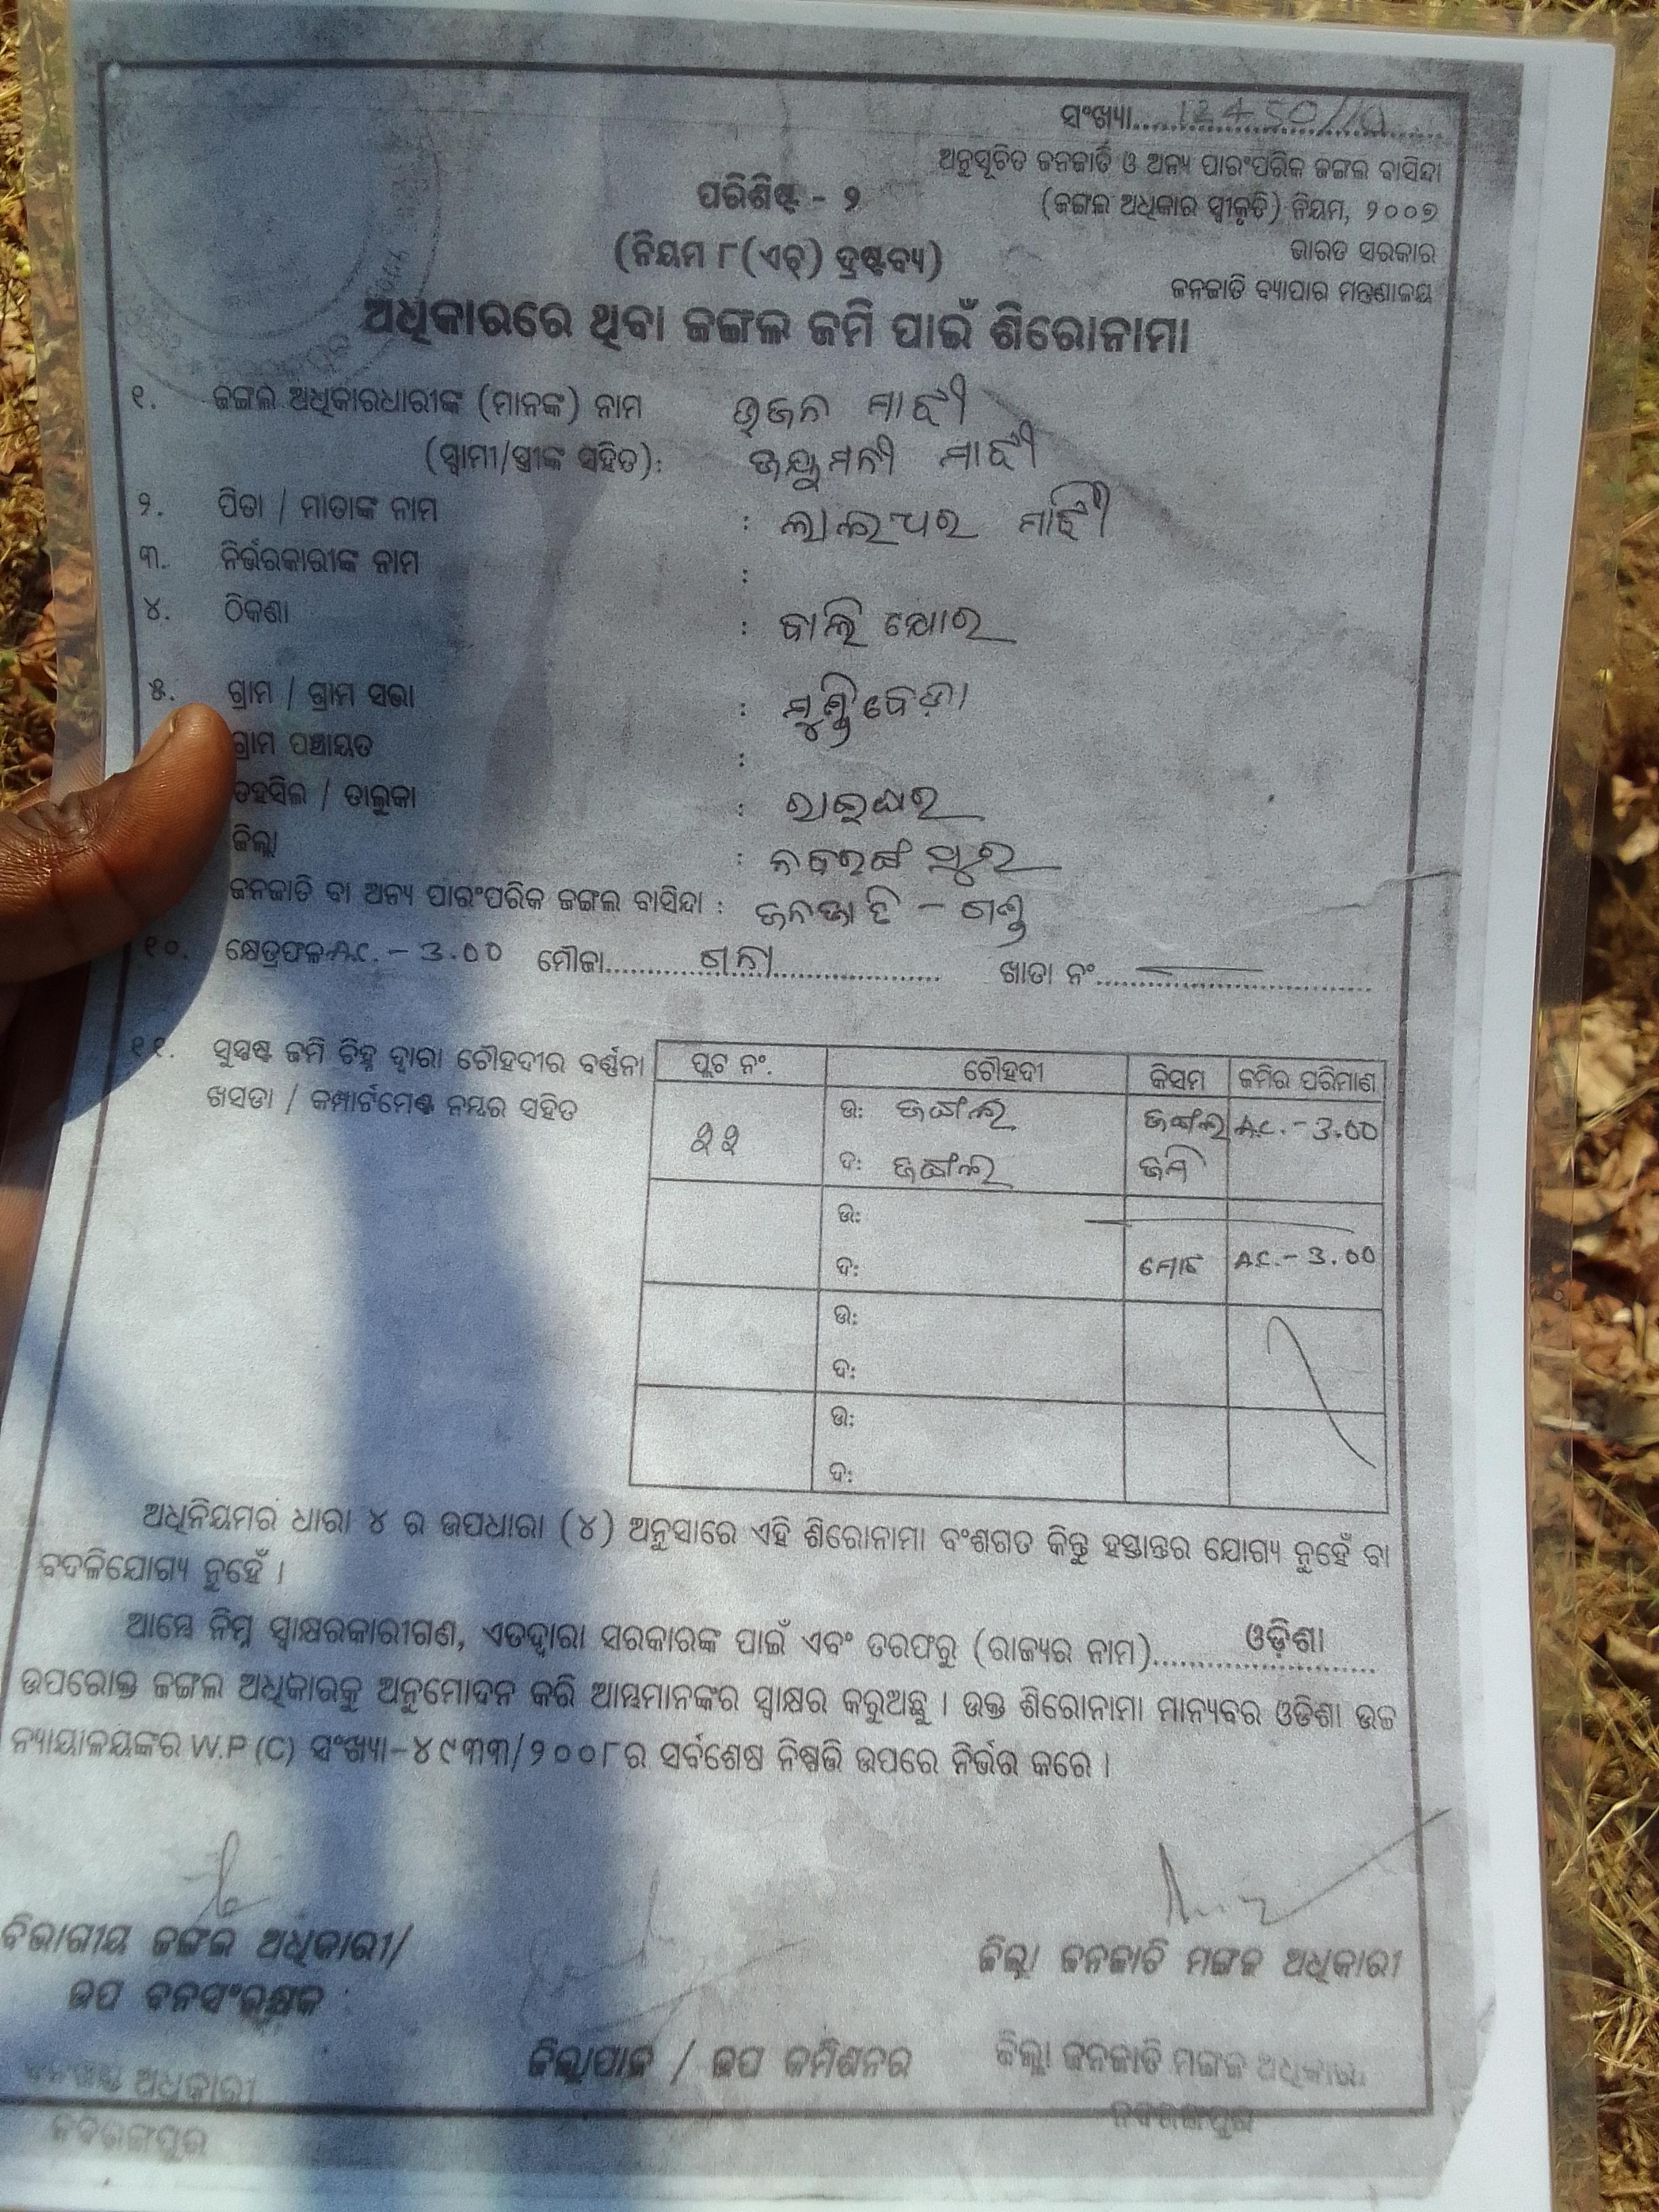 ସଂଖ୍ୟା
ଅନୁସୂଚିତ ଜନଜାତି ଓ ଅନ୍ୟ ପାରଂପରିକ ଜଙ୍ଗଲ ବାସିନ୍ଦା
ପରିଶିଷ୍ଟ - ୨
(ଜଙ୍ଗଲ ଅଧିକାର ସ୍ୱୀକୃତି) ନିୟମ, ୨୦୦୭
(ନିୟମ ୮(ଏଚ୍) ଦ୍ରଷ୍ଟବ୍ୟ)
ଭାରତ ସରକାର
ଜନଜାତି ବ୍ୟାପାର ମନ୍ତ୍ରଣାଳୟ
ଅଧିକାରରେ ଥିବା ଜଙ୍ଗଲ ଜମି ପାଇଁ ଶିରୋନାମା
୧. ଜଙ୍ଗଲ ଅଧିକାରଧାରୀଙ୍କ (ମାନଙ୍କ) ନାମ ମାଝୀ
(ସ୍ୱାମୀ/ସ୍ତ୍ରୀଙ୍କ ସହିତ): ଜୟମନୀ ମାଝୀ
୨. ପିତା / ମାତାଙ୍କ ନାମ : ଲାଲଧର ମାଝି
୩. ନିର୍ଭରକାରୀଙ୍କ ନାମ :
୪. ଠିକଣା : ବାଲି ଖୋର
୫. ଗ୍ରାମ / ଗ୍ରାମ ସଭା : ମୁଣ୍ଡିବେଡ଼ା
ଗ୍ରାମ ପଞ୍ଚାୟତ :
ତହସିଲ / ତାଲୁକା : ରାଇଘର
ଜିଲ୍ଲା : ନବରଙ୍ଗପୁର
ଜନଜାତି ବା ଅନ୍ୟ ପାରଂପରିକ ଜଙ୍ଗଲ ବାସିନ୍ଦା : ଜନଜାତି - ଗଣ୍ଡ
୧୦. କ୍ଷେତ୍ରଫଳ AC. - 3.00 ମୌଜା ଖାତା ନଂ
୧୧. ସୁସ୍ପଷ୍ଟ ଜମି ଚିହ୍ନ ଦ୍ୱାରା ଚୌହଦୀର ବର୍ଣ୍ଣନା
ଖସଡା / କମ୍ପାର୍ଟମେଣ୍ଟ ନମ୍ବର ସହିତ
ପ୍ଲଟ ନଂ. ଚୌହଦୀ କିସମ ଜମିର ପରିମାଣ
ଉ: ଜଙ୍ଗଲ ଜଙ୍ଗଲ AC. - 3.00
ଦ: ଜଙ୍ଗଲ ଜମି
ଉ:
ଦ: ମୋଟ AC. - 3.00
ଉ:
ଦ:
ଉ:
ଦ:
ଅଧିନିୟମର ଧାରା ୪ ର ଉପଧାରା (୪) ଅନୁସାରେ ଏହି ଶିରୋନାମା ବଂଶଗତ କିନ୍ତୁ ହସ୍ତାନ୍ତର ଯୋଗ୍ୟ ନୁହେଁ ବା
ବଦଳିଯୋଗ୍ୟ ନୁହେଁ ।
ଆମ୍ଭେ ନିମ୍ନ ସ୍ୱାକ୍ଷରକାରୀଗଣ, ଏତଦ୍ୱାରା ସରକାରଙ୍କ ପାଇଁ ଏବଂ ତରଫରୁ (ରାଜ୍ୟର ନାମ) ଓଡ଼ିଶା
ଉପରୋକ୍ତ ଜଙ୍ଗଲ ଅଧିକାରକୁ ଅନୁମୋଦନ କରି ଆମ୍ଭମାନଙ୍କର ସ୍ୱାକ୍ଷର କରୁଅଛୁ । ଉକ୍ତ ଶିରୋନାମା ମାନ୍ୟବର ଓଡିଶା ଉଚ୍ଚ
ନ୍ୟାୟାଳୟଙ୍କର W.P (C) ସଂଖ୍ୟା-୪୯୩୩/୨୦୦୮ର ସର୍ବଶେଷ ନିଷ୍ପତ୍ତି ଉପରେ ନିର୍ଭର କରେ ।
ବିଭାଗୀୟ ଜଙ୍ଗଲ ଅଧିକାରୀ/
ଉପ ବନସଂରକ୍ଷକ
ଜିଲ୍ଲା ଜନଜାତି ମଙ୍ଗଳ ଅଧିକାରୀ
ଜିଲ୍ଲାପାଳ / ଉପ କମିଶନର
ଜିଲ୍ଲା ଜନଜାତି ମଙ୍ଗଳ ଅଧିକାରୀ
ନବରଙ୍ଗପୁର
ବନଖଣ୍ଡ ଅଧିକାରୀ
ନବରଙ୍ଗପୁର